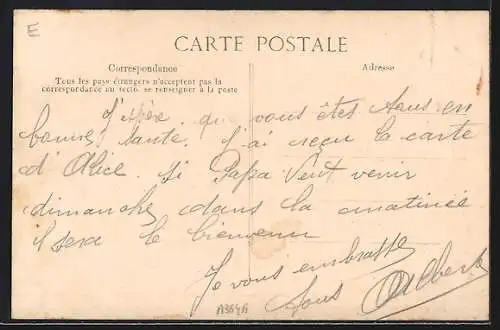 E
CARTE POSTALE
Correspondance
Adresse
Tous les pays étrangers n'acceptent pas la
correspondance au recto, se renseigner à la poste
J'espère que vous êtes tous en
bonne santé. J'ai reçu la carte
d'Alice. Si Papa veut venir
dimanche dans la matinée
il sera le bienvenu
Je vous embrasse
tous Albert
A384A